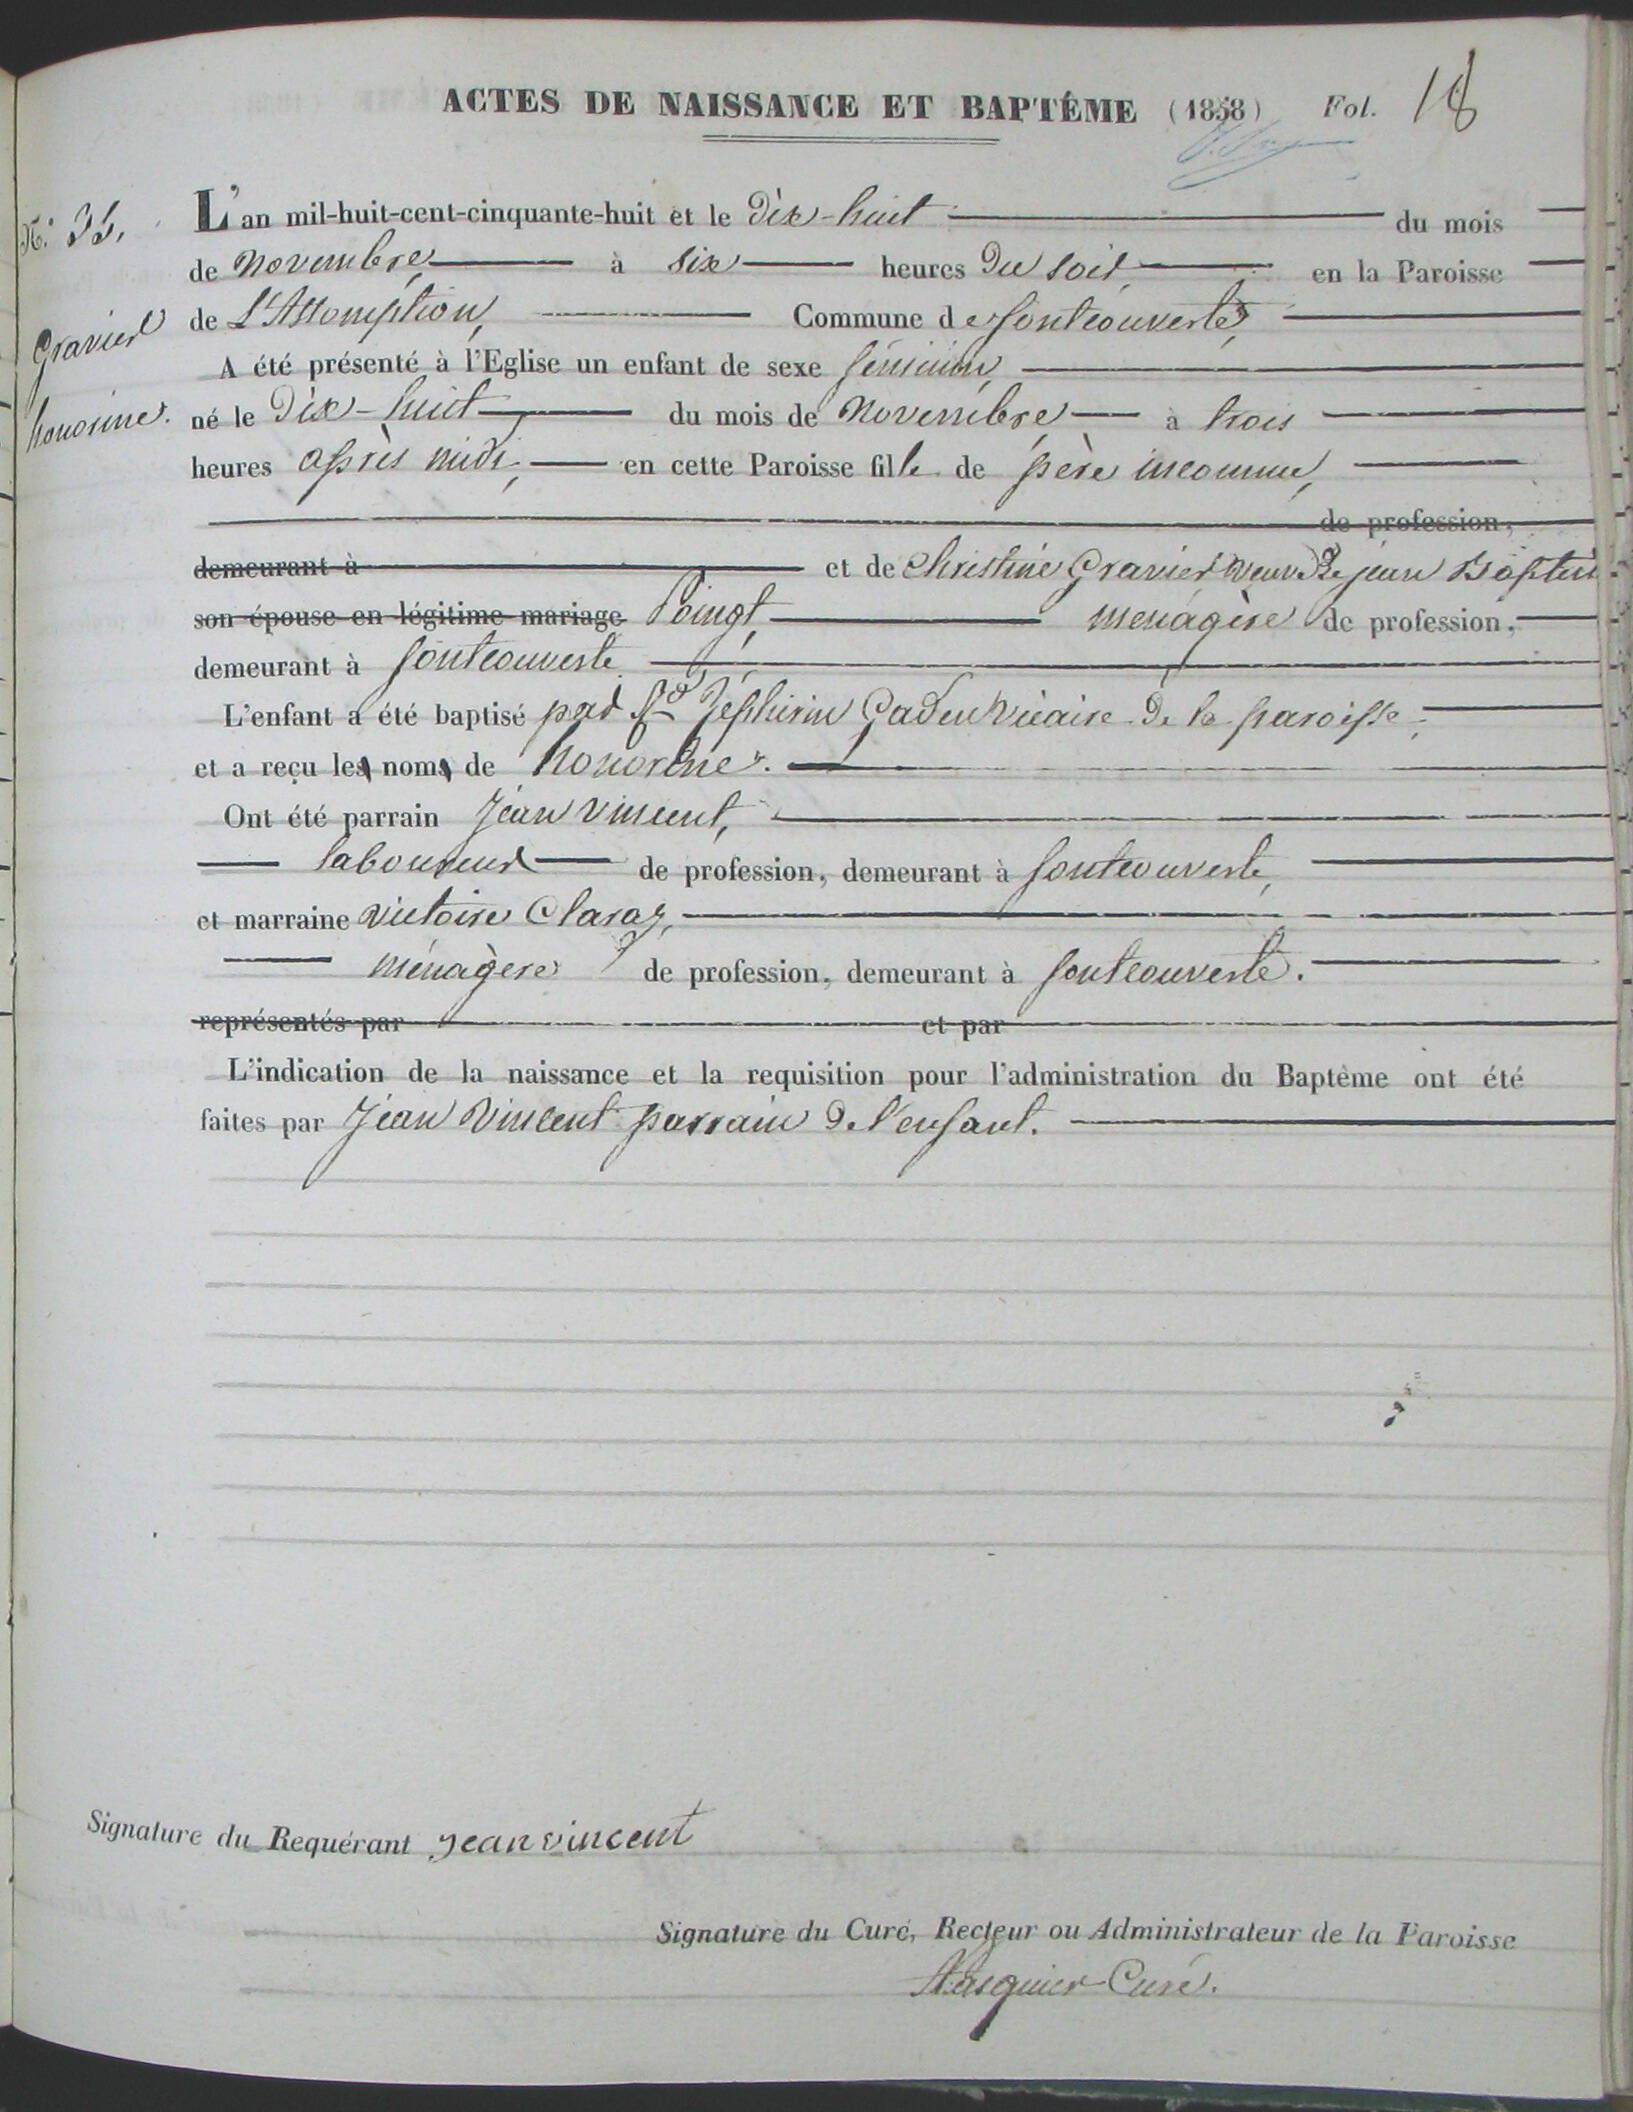 ACTES DE NAISSANCE ET BAPTÊME (1858) Fol. 18
N.º 35.
Gravier
honorine.
L'an mil-huit-cent-cinquante-huit et le Dix-huit du mois
de Novembre à six heures Du soir, en la Paroisse
de L'Assomption, Commune de fontcouverte,
A été présenté à l'Eglise un enfant de sexe féminin,
né le Dix-huit du mois de Novembre à trois
heures après midi, en cette Paroisse fille de père inconnu,
de profession,
demeurant à et de Christine Gravier veuve De jean Baptiste
son épouse en légitime mariage Poingt, menagère de profession,
demeurant à fontcouverte
L'enfant a été baptisé par Rd Zéphirin Gaden vicaire De la paroisse,
et a reçu les noms de honorine.
Ont été parrain Jean vincent,
laboureur de profession, demeurant à fontcouverte,
et marraine victoire Claraz,
ménagère de profession, demeurant à fontcouverte.
représentés par et par
L'indication de la naissance et la requisition pour l'administration du Baptême ont été
faites par Jean Vincent parrain De l'enfant.
Signature du Requérant jean vincent
Signature du Curé, Recteur ou Administrateur de la Paroisse
Curé.